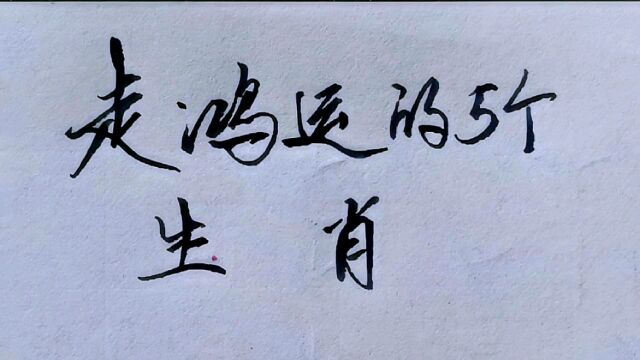 走鸿运的5个
生肖